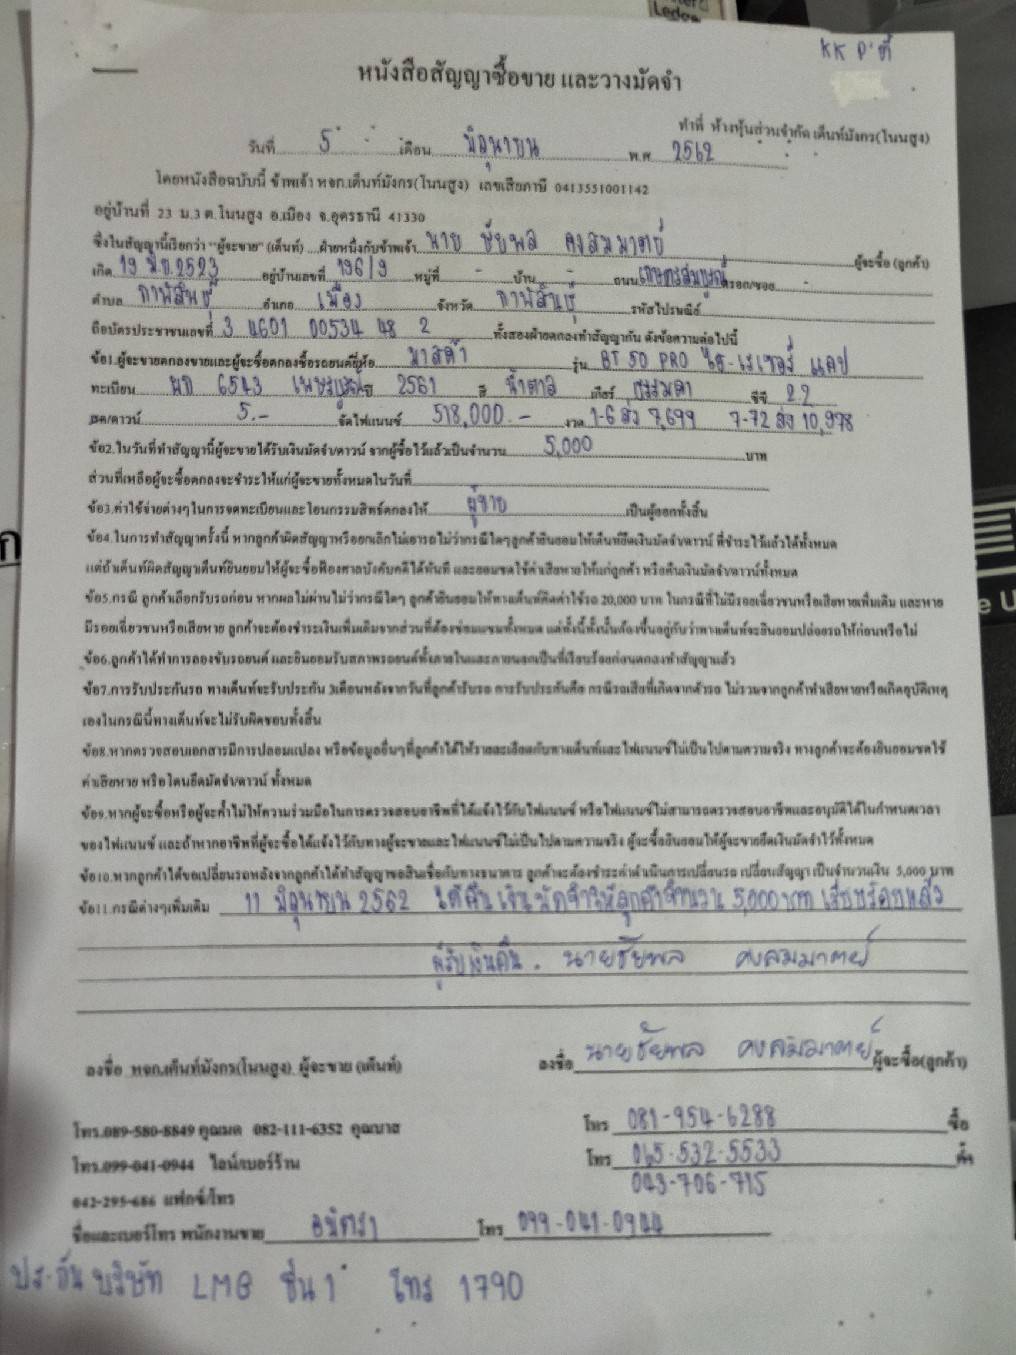 KK P'ตี้
หนังสือสัญญาซื้อขาย และวางมัดจำ
ทำที่ ห้างหุ้นส่วนจำกัด เต็นท์มังกร(โนนสูง)
วันที่ 5 เดือน มิถุนายน พ.ศ 2562
โดยหนังสือฉบับนี้ ข้าพเจ้า หจก.เต็นท์มังกร(โนนสูง) เลขเสียภาษี 0413551001142
อยู่บ้านที่ 23 ม.3 ต.โนนสูง อ.เมือง จ.อุดรธานี 41330
ซึ่งในสัญญานี้เรียกว่า "ผู้จะขาย" (เต็นท์) ฝ่ายหนึ่งกับข้าพเจ้า นาย ชัยพล คงสมมาตย์ ผู้จะซื้อ (ลูกค้า)
เกิด 19 มิ.ย. 2523 อยู่บ้านเลขที่ 196/9 หมู่ที่ - บ้าน - ถนน เกษตรสมบูรณ์ ตรอก/ซอย -
ตำบล กาฬสินธุ์ อำเภอ เมือง จังหวัด กาฬสินธุ์ รหัสไปรษณีย์
ถือบัตรประชาชนเลขที่ 3 4601 00534 48 2 ทั้งสองฝ่ายตกลงทำสัญญากัน ดังข้อความต่อไปนี้
ข้อ1.ผู้จะขายตกลงขายและผู้จะซื้อตกลงซื้อรถยนต์ยี่ห้อ มาสด้า รุ่น BT 50 PRO ไฮ-เรเซอร์ แคป
ทะเบียน ผด 6543 เพชรบูรณ์ ปี 2561 สี น้ำตาล เกียร์ ธรรมดา ซีซี 2.2
สด/ดาวน์ 5.- จัดไฟแนนซ์ 518,000.- งวด 1-6 ส่ง 7,699 7-72 ส่ง 10,978
ข้อ2.ในวันที่ทำสัญญานี้ผู้จะขายได้รับเงินมัดจำ/ดาวน์ จากผู้ซื้อไว้แล้วเป็นจำนวน 5,000 บาท
ส่วนที่เหลือผู้จะซื้อตกลงจะชำระให้แก่ผู้จะขายทั้งหมดในวันที่
ข้อ3.ค่าใช้จ่ายต่างๆในการจดทะเบียนและโอนกรรมสิทธิ์ตกลงให้ ผู้ขาย เป็นผู้ออกทั้งสิ้น
ข้อ4.ในการทำสัญญาครั้งนี้ หากลูกค้าผิดสัญญาหรือยกเลิกไม่เอารถไม่ว่ากรณีใดๆลูกค้ายินยอมให้เต็นท์ยึดเงินมัดจำ/ดาวน์ ที่ชำระไว้แล้วได้ทั้งหมด
แต่ถ้าเต็นท์ผิดสัญญาเต็นท์ยินยอมให้ผู้จะซื้อฟ้องศาลบังคับคดีได้ทันที และยอมชดใช้ค่าเสียหายให้แก่ลูกค้า หรือคืนเงินมัดจำ/ดาวน์ทั้งหมด
ข้อ5.กรณี ลูกค้าเลือกรับรถก่อน หากผลไม่ผ่านไม่ว่ากรณีใดๆ ลูกค้ายินยอมให้ทางเต็นท์คิดค่าใช้รถ 20,000 บาท ในกรณีที่ไม่มีรอยเฉี่ยวชนหรือเสียหายเพิ่มเติม และหาย
มีรอยเฉี่ยวชนหรือเสียหาย ลูกค้าจะต้องชำระเงินเพิ่มเติมจากส่วนที่ต้องซ่อมแซมทั้งหมด แต่ทั้งนี้ทั้งนั้นต้องขึ้นอยู่กับว่าทางเต็นท์จะยินยอมปล่อยรถให้ก่อนหรือไม่
ข้อ6.ลูกค้าได้ทำการลองขับรถยนต์ และยินยอมรับสภาพรถยนต์ทั้งภายในและภายนอกเป็นที่เรียบร้อยก่อนตกลงทำสัญญาแล้ว
ข้อ7.การรับประกันรถ ทางเต็นท์จะรับประกัน 3เดือนหลังจากวันที่ลูกค้ารับรถ การรับประกันคือ กรณีรถเสียที่เกิดจากตัวรถ ไม่รวมจากลูกค้าทำเสียหายหรือเกิดอุบัติเหตุ
เองในกรณีนี้ทางเต็นท์จะไม่รับผิดชอบทั้งสิ้น
ข้อ8.หากตรวจสอบเอกสารมีการปลอมแปลง หรือข้อมูลอื่นๆที่ลูกค้าได้ให้รายละเอียดกับทางเต็นท์และไฟแนนซ์ไม่เป็นไปตามความจริง ทางลูกค้าจะต้องยินยอมชดใช้
ค่าเสียหาย หรือโดนยึดมัดจำ/ดาวน์ ทั้งหมด
ข้อ9.หากผู้จะซื้อหรือผู้จะค้ำไม่ให้ความร่วมมือในการตรวจสอบอาชีพที่ได้แจ้งไว้กับไฟแนนซ์ หรือไฟแนนซ์ไม่สามารถตรวจสอบอาชีพและอนุมัติได้ในกำหนดเวลา
ของไฟแนนซ์ และถ้าหากอาชีพที่ผู้จะซื้อได้แจ้งไว้กับทางผู้จะขายและไฟแนนซ์ไม่เป็นไปตามความจริง ผู้จะซื้อยินยอมให้ผู้จะขายยึดเงินมัดจำไว้ทั้งหมด
ข้อ10.หากลูกค้าได้ขอเปลี่ยนรถหลังจากลูกค้าได้ทำสัญญาขอสินเชื่อกับทางธนาคาร ลูกค้าจะต้องชำระค่าดำเนินการเปลี่ยนรถ เปลี่ยนสัญญา เป็นจำนวนเงิน 5,000 บาท
ข้อ11.กรณีต่างๆเพิ่มเติม 11 มิถุนายน 2562 ได้คืนเงินมัดจำให้ลูกค้าจำนวน 5,000 บาท เรียบร้อยแล้ว
ผู้รับเงินคืน. นายชัยพล คงสมมาตย์
ลงชื่อ หจก.เต็นท์มังกร(โนนสูง) ผู้จะขาย (เต็นท์) ลงชื่อ นายชัยพล คงสมมาตย์ ผู้จะซื้อ(ลูกค้า)
โทร.089-580-8849 คุณมด 082-111-6352 คุณบาส โทร 081-954-6288 ซื้อ
โทร.099-041-0944 ไลน์/เบอร์ร้าน โทร 065-532-5533 ค้ำ
042-295-686 แฟกซ์/โทร 043-706-715
ชื่อและเบอร์โทร พนักงานขาย อนิตรา โทร 099-041-0944
ประกันบริษัท LMG ชั้น 1 โทร 1790